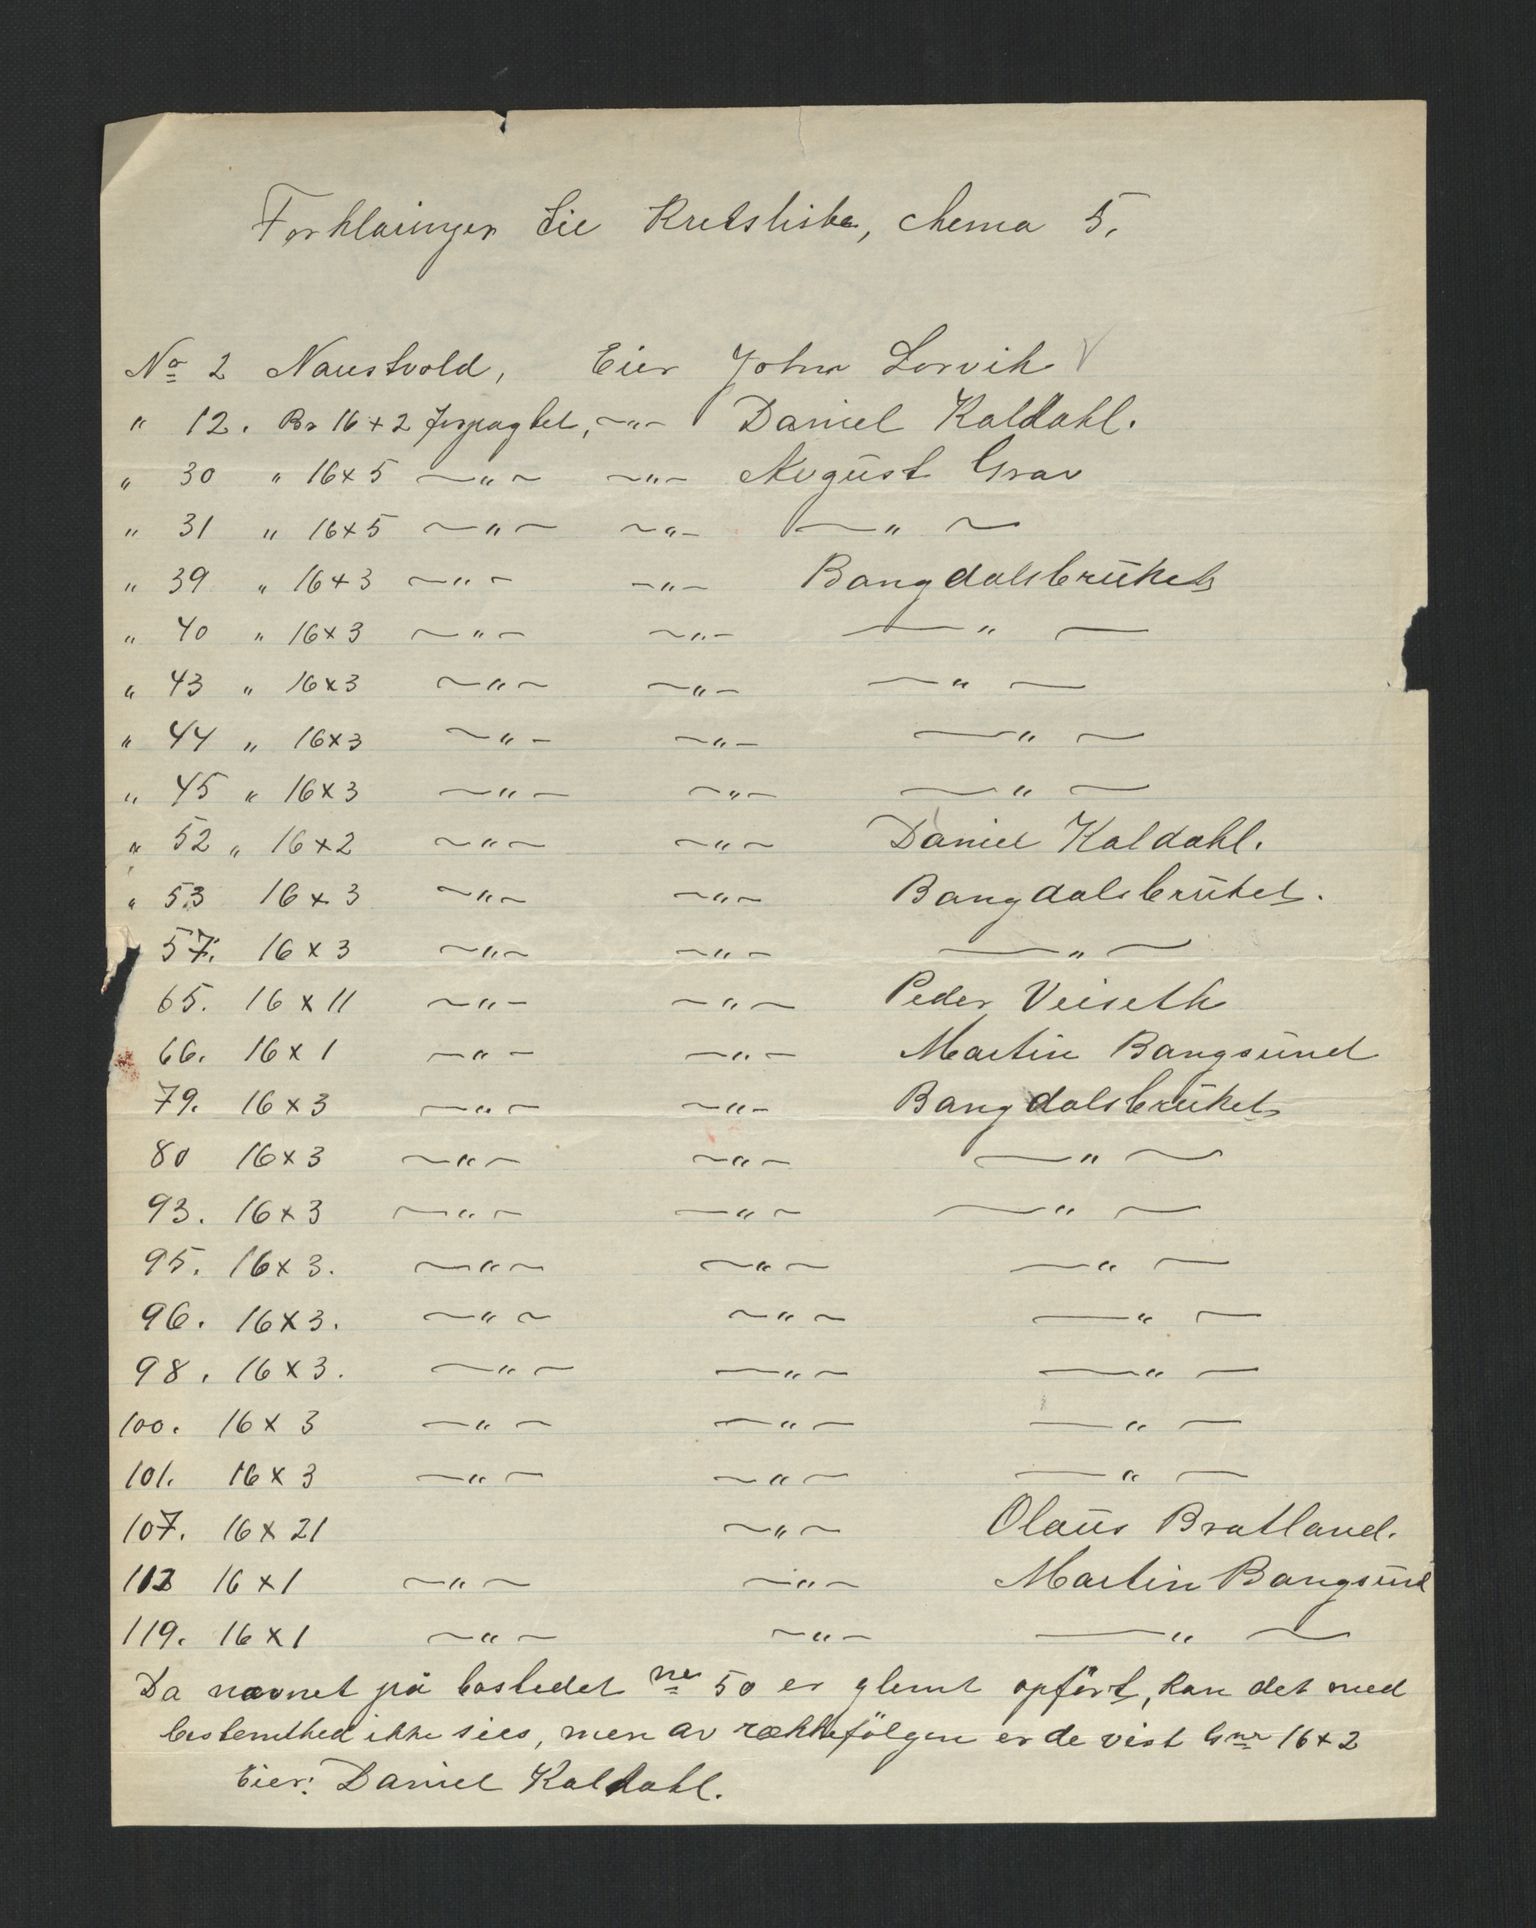 Forklaringer til Kretsliste, chema 5.
No 2 Naustvold, Eier John Lorvik
" 12. Br 16 x 2 forpagtet, —"— Daniel Kaldahl.
" 30 " 16 x 5 —"— —"— August Grav
" 31 " 16 x 5 —"— —"— —"—
" 39 " 16 x 3 —"— —"— Bangdalsbruket
" 40 " 16 x 3 —"— —"— —"—
" 43 " 16 x 3 —"— —"— —"—
" 44 " 16 x 3 —"— —"— —"—
" 45 " 16 x 3 —"— —"— —"—
" 52 " 16 x 2 —"— —"— Daniel Kaldahl.
" 53 16 x 3 —"— —"— Bangdalsbruket.
57. 16 x 3 —"— —"— —"—
65. 16 x 11 —"— —"— Peder Veiseth
66. 16 x 1 —"— —"— Martin Bangsund
79. 16 x 3 —"— —"— Bangdalsbruket
80 16 x 3 —"— —"— —"—
93. 16 x 3 —"— —"— —"—
95. 16 x 3. —"— —"— —"—
96. 16 x 3. —"— —"— —"—
98. 16 x 3. —"— —"— —"—
100. 16 x 3 —"— —"— —"—
101. 16 x 3 —"— —"— —"—
107. 16 x 21 —"— Olaus Bratland.
16 x 1 —"— —"— Martin Bangsund
119. 16 x 1 —"— —"— —"—
Da navnet på bostedet nr 50 er glemt opført, kan det med
bestemthed ikke sies, men av rækkefölgen er de vist Gnr 16 x 2
Eier: Daniel Kaldahl.